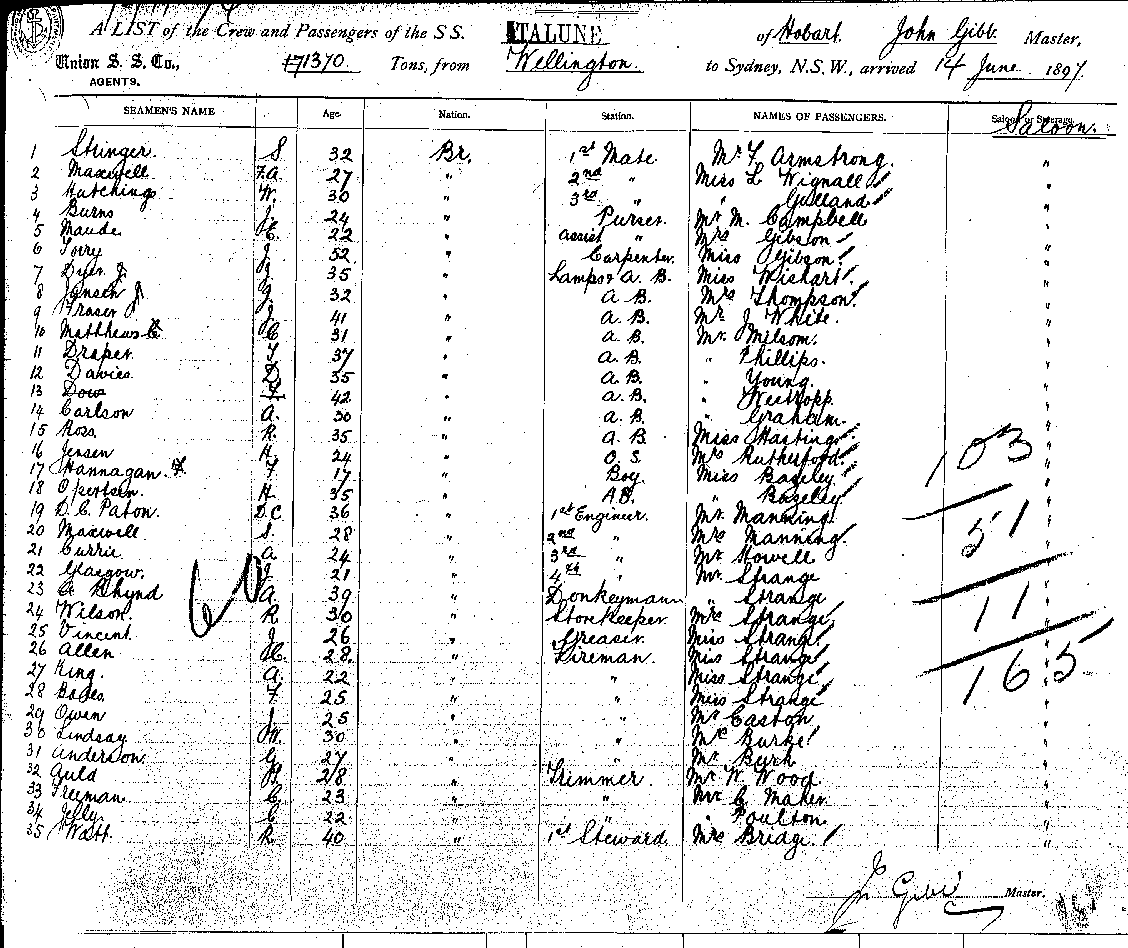 A LIST of the Crew and Passengers of the S S. TALUNE of Hobart. John Gibb Master,
Union S. S. Co., 1370. Tons, from Wellington. to Sydney, N.S.W., arrived 14 June 1897.
AGENTS.
SEAMEN'S NAME Age. Nation. Station. NAMES OF PASSENGERS. Saloon or Steerage.
Saloon.
1 Stringer. S 32 Br. 1st Mate Mr F. Armstrong.
2 Maxwell F.A. 27 " 2nd " Miss L Wignall "
3 Hutchings W. 30 " 3rd " " Gulland "
4 Burns J. 24 " Purser. Mr M. Campbell "
5 Maude H. 22 " assist " Mrs Gibson "
6 Torry J. 52 " Carpenter. Miss Gibson "
7 Dyer J. J. 35 " Lamps & A. B. Miss Wishart "
8 Jansen J J. 32 " A B. Mrs Thompson "
9 Fraser J J. 41 " A B. Mr J White. "
10 Matthews C C 31 " A B. Mr. Milsom. "
11 Draper. T 37 " A B. " Phillips. "
12 Davies. D 35 " A B. " Young. "
13 Dow F 42 " A B. " Westropp. "
14 Carlson A. 30 " A B. " Graham. "
15 Ross. R. 35 " A B Miss Hasting "
16 Jensen H. 24 " O. S. Mrs Rutherford "
17 Hannagan. F. F 17 " Boy. Miss Bazeley "
18 H. 35 " A.B. " Bazeley "
19 D. C. Paton. D.C. 36 " 1st Engineer. Mr. Manning. "
20 Maxwell S. 28 " 2nd " Mrs Manning. "
21 Currie A. 24 " 3rd " Mr Howell "
22 Glasgow. J 21 " 4th " Mr. Strange "
23 A Rhynd A 39 " Donkeyman " Strange "
24 Wilson. R 30 " Storekeeper Mrs Strange "
25 Vincent. J 26 " Greaser. Miss Strange "
26 Allen H. 28. " Fireman. Miss Strange "
27 King. A. 22 " " Miss Strange "
28 F 25 " " Miss Strange "
29 Owen J. 25 " " Mr Easton "
30 Lindsay W. 30 " " Mrs Burke "
31 Anderson. G 27 " " Mr Burk "
32 Auld H 28 " Trimmer. Mr W. Wood "
33 Freeman. C. 23 " " Mr C. Maher "
34 C 22 " " " Poulton. "
35 Watt. R 40 " 1st Steward. Mrs Bridge. "
60
103
51
11
165
J. Gibb Master.